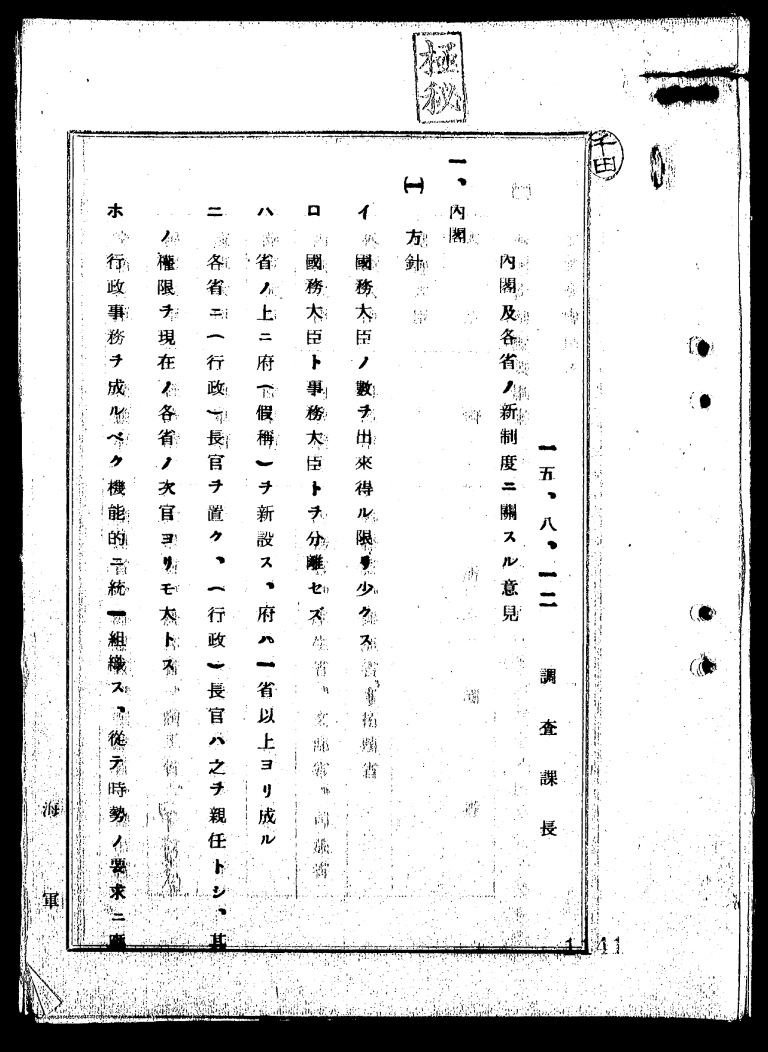 極秘
千田
一五、八、一二　調査課長
內閣及各省ノ新制度ニ關スル意見
一、內閣
㈠方針
イ國務大臣ノ數ヲ出來得ル限リ少クス
ロ國務大臣ト事務大臣トヲ分離セズ
ハ省ノ上ニ府(假稱)ヲ新設ス、府ハ一省以上ヨリ成ル
ニ各省ニ(行政)長官ヲ置ク、(行政)長官ハ之ヲ親任トシ、其
ノ權限ヲ現在ノ各省ノ次官ヨリモ大トス
ホ行政事務ヲ成ルベク機能的ニ統一組織ス、從テ時勢ノ要求ニ應
海軍
1141